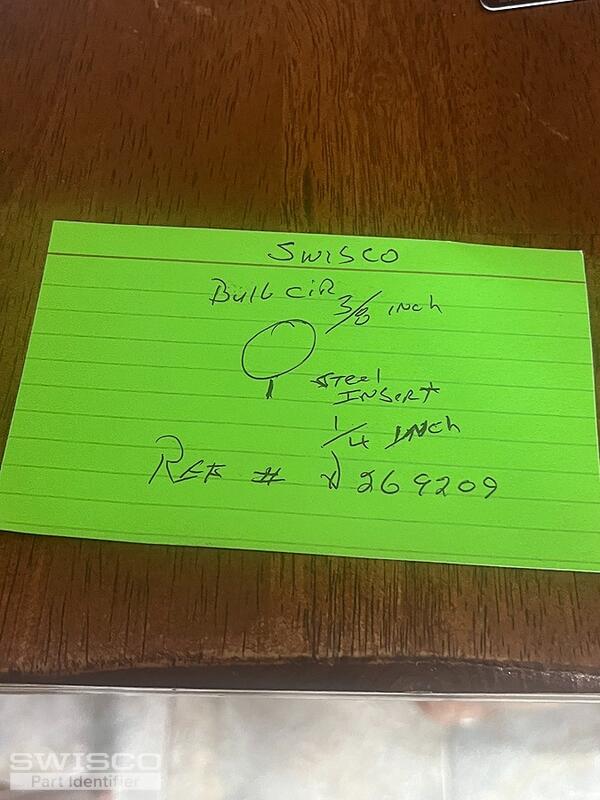 SWISCO
Bulb CiR 3/8 inch
STeel
INSeRt
1/4 INch
REF # D269209
SWISCO
Part Identifier